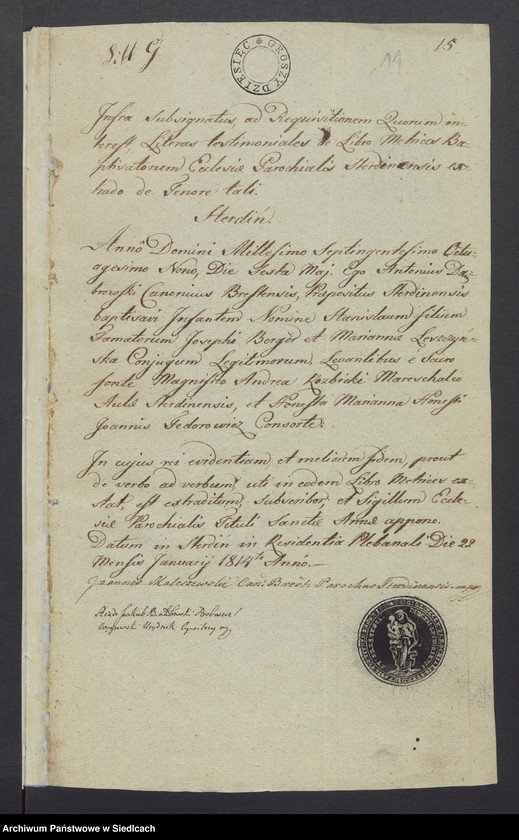 15
11
DZIESIĘC GROSZY
Infra Subsignatus, ad Requisitionem Quorum in-
terest, Literas testimoniales de Libro Metrices Ba-
ptisatorum Ecclesiæ Parochialis Sterdinensis ex-
trado de Tenore tali.
Sterdiń.
Annô Domini Millesimo Septingentesimo Octu-
agesimo Nono, Die Maj. Ego Antonius Dą-
browski Canonicus Brestensis, Præpositus Sterdinensis
baptisavi Infantem Nomine Stanislaum filium
Famatorum Josephi et Marianna Leszczyń-
ska Conjugum Legitimorum, Levantibus è Sacro
fonte Magnifico Andrea Kozbicki Mareschalco
Aulæ Sterdinensis, et Honesta Marianna Honesti
Joannis Fedorowicz Consorte.
In cujus rei evidentiam, et meliorem fidem, prout
de verbo ad verbum, uti in eodem Libro Metrices ex-
tat, est extraditum, subscribor, et Sigillum Eccle-
siæ Parochialis Tituli Sanctæ Annæ appono.
Datum in Sterdin in Residentia Plebanali Die 22
Mensis Januarij 1814to Anno.
Joannes Can: Parochus Sterdinensis mpp
Archiwum Państwowe w Siedlcach